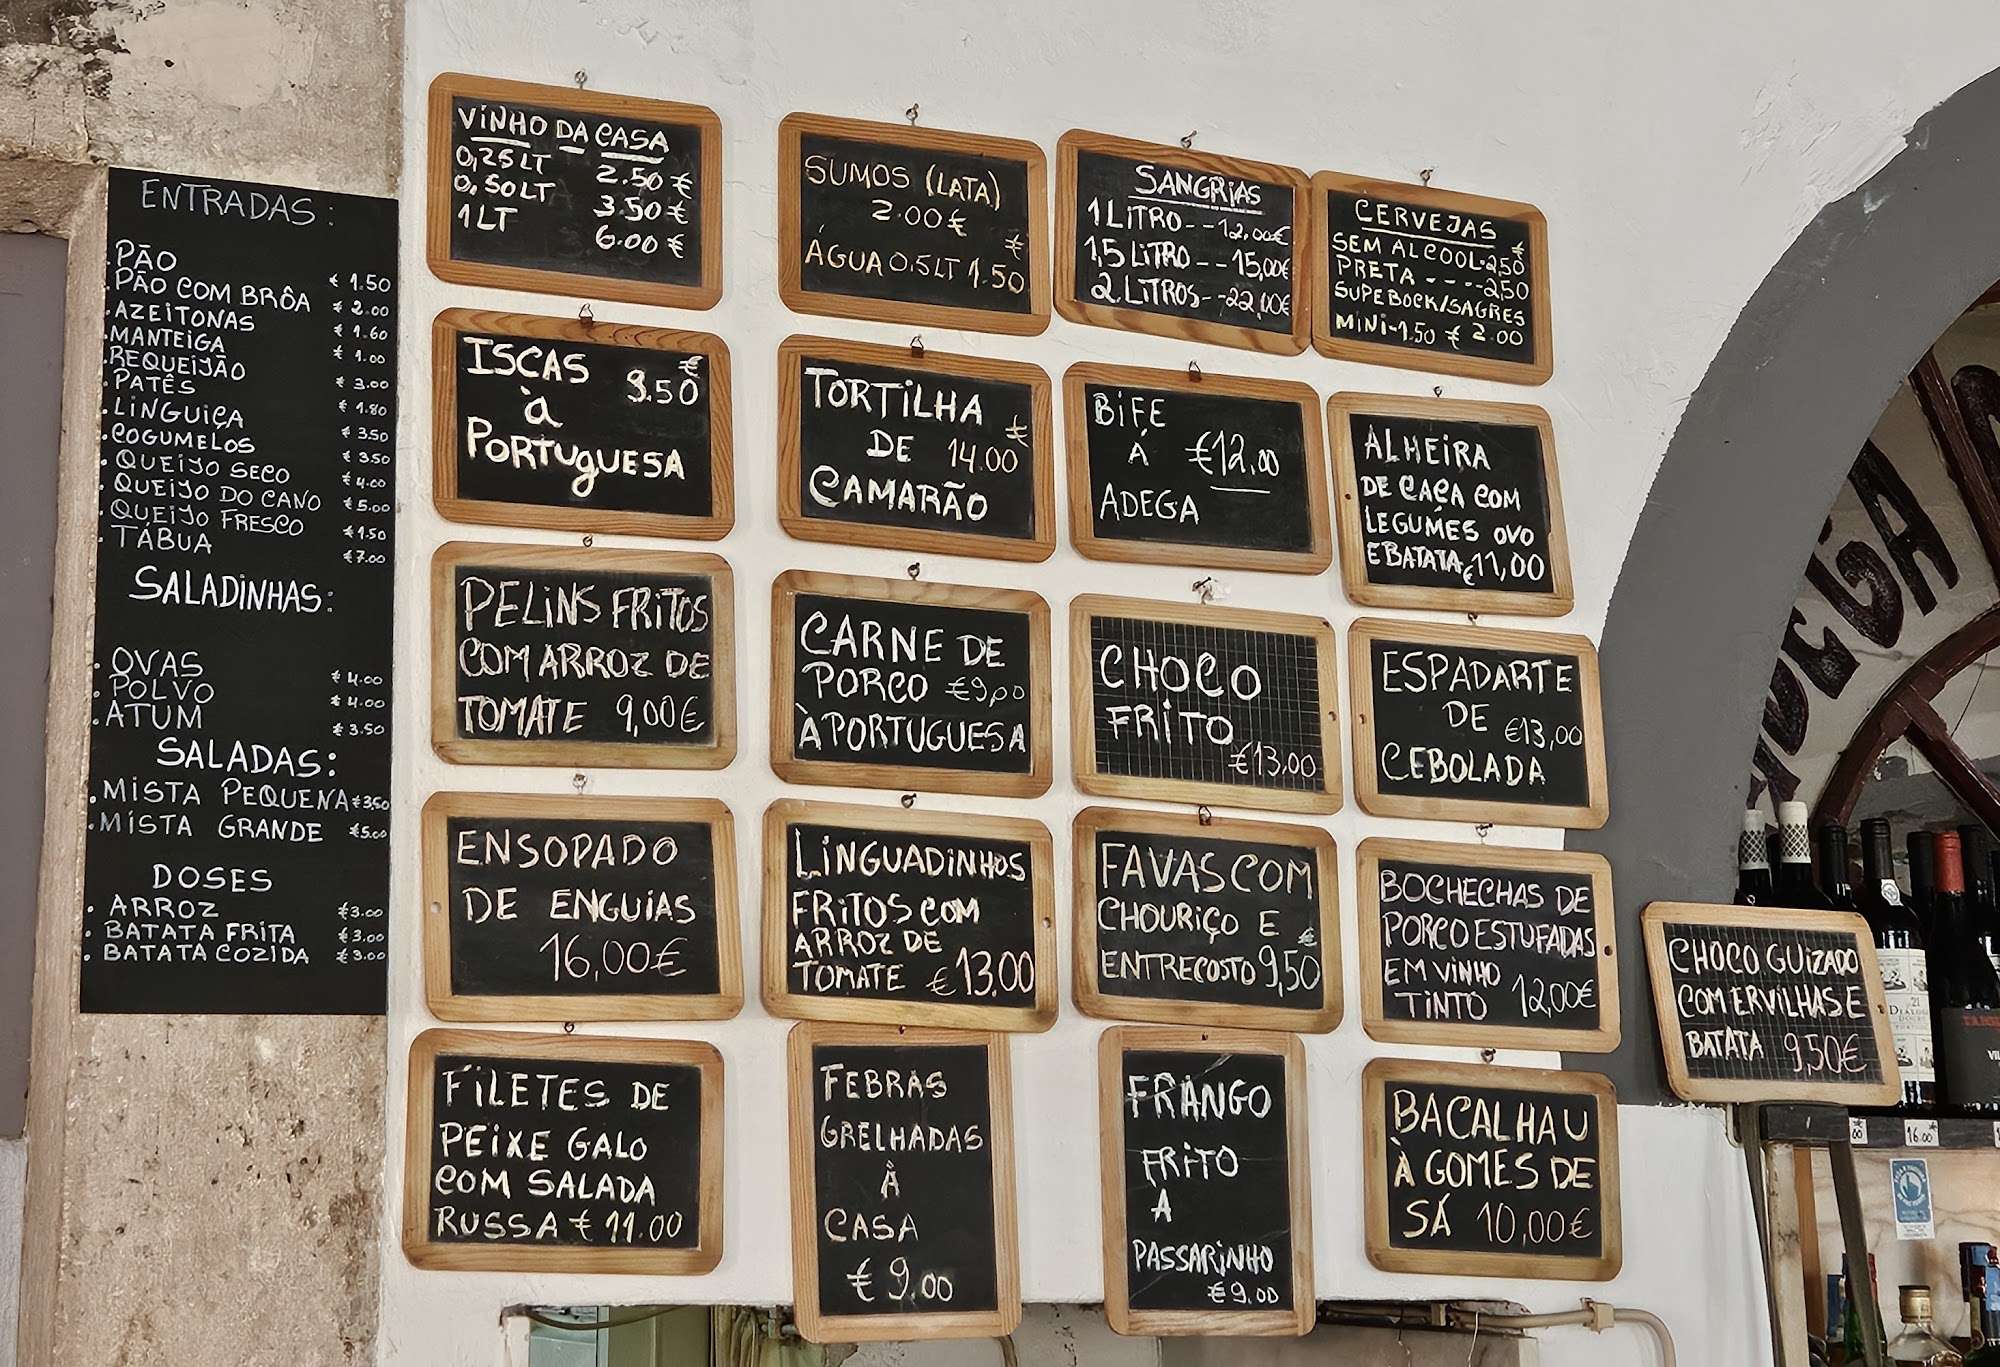 ENTRADAS:
.PÃO € 1.50
.PÃO COM BRÔA € 2.00
.AZEITONAS € 1.60
.MANTEIGA € 1.00
.REQUEIJÃO € 3.00
.PATÊS € 1.80
.LINGUIÇA € 3.50
.COGUMELOS € 3.50
.QUEIJO SECO € 4.00
.QUEIJO DO CANO € 5.00
.QUEIJO FRESCO € 1.50
.TÁBUA € 7.00
SALADINHAS:
.OVAS € 4.00
.POLVO € 4.00
.ATUM € 3.50
SALADAS:
.MISTA PEQUENA € 3,50
.MISTA GRANDE € 5.00
DOSES
.ARROZ € 3.00
.BATATA FRITA € 3.00
.BATATA COZIDA € 3.00
VINHO DA CASA
0,25 LT 2.50 €
0,50 LT 3.50 €
1 LT 6.00 €
SUMOS (LATA)
2.00 €
ÁGUA 0,5 LT 1.50 €
SANGRIAS
1 LITRO--12,00€
1,5 LITRO--15,00€
2 LITROS--22,00€
CERVEJAS
SEM ALCOOL-2,50 €
PRETA ----2,50
SUPEBOCK/SAGRES
MINI-1.50 € 2.00
ISCAS 9.50 €
à
PORTUGUESA
TORTILHA
DE 14.00 €
CAMARÃO
BIFE
Á €12,00
ADEGA
ALHEIRA
DE CAÇA COM
LEGUMES OVO
E BATATA €11,00
PELINS FRITOS
COM ARROZ DE
TOMATE 9,00€
CARNE DE
PORCO €9,00
À PORTUGUESA
CHOCO
FRITO
€13.00
ESPADARTE
DE €13,00
CEBOLADA
ENSOPADO
DE ENGUIAS
16,00€
LINGUADINHOS
FRITOS COM
ARROZ DE
TOMATE €13.00
FAVAS COM
CHOURIÇO E
ENTRECOSTO 9,50 €
BOCHECHAS DE
PORCO ESTUFADAS
EM VINHO
TINTO 12,00€
CHOCO GUIZADO
COM ERVILHAS E
BATATA 9,50€
FILETES DE
PEIXE GALO
COM SALADA
RUSSA € 11.00
FEBRAS
GRELHADAS
À
CASA
€ 9.00
FRANGO
FRITO
A
PASSARINHO
€ 9.00
BACALHAU
À GOMES DE
SÁ 10,00€
ADEGA
16.00 €